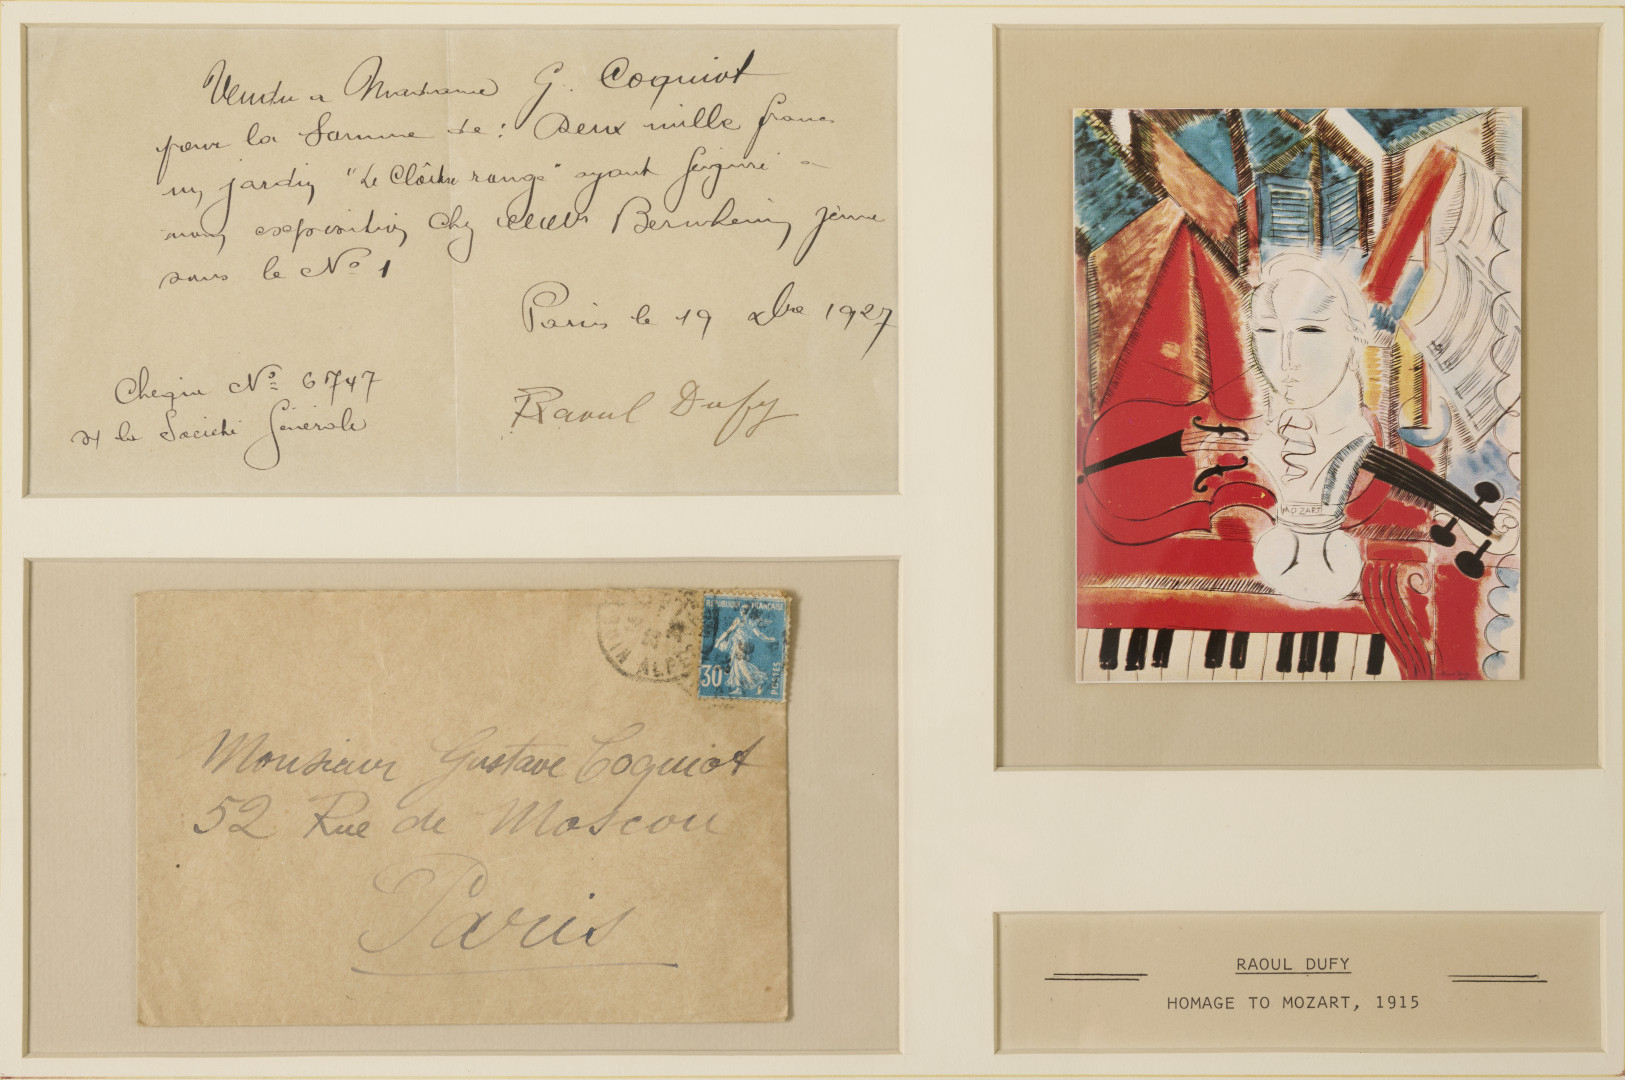 Vendu a Madame G. Coquiot
pour la Somme de: Deux mille francs
un jardin "Le Cloître rouge" ayant figuré a
mon exposition chez MM Bernheim jeune
sous le Nº 1
Paris le 19 xbre 1927
Cheque Nº 6747
la Société Générale
Raoul Dufy
REPUBLIQUE FRANÇAISE
30
POSTES
ALPES
Monsieur Gustave Coquiot
52 Rue de Moscou
Paris
MOZART
RAOUL DUFY
HOMAGE TO MOZART, 1915